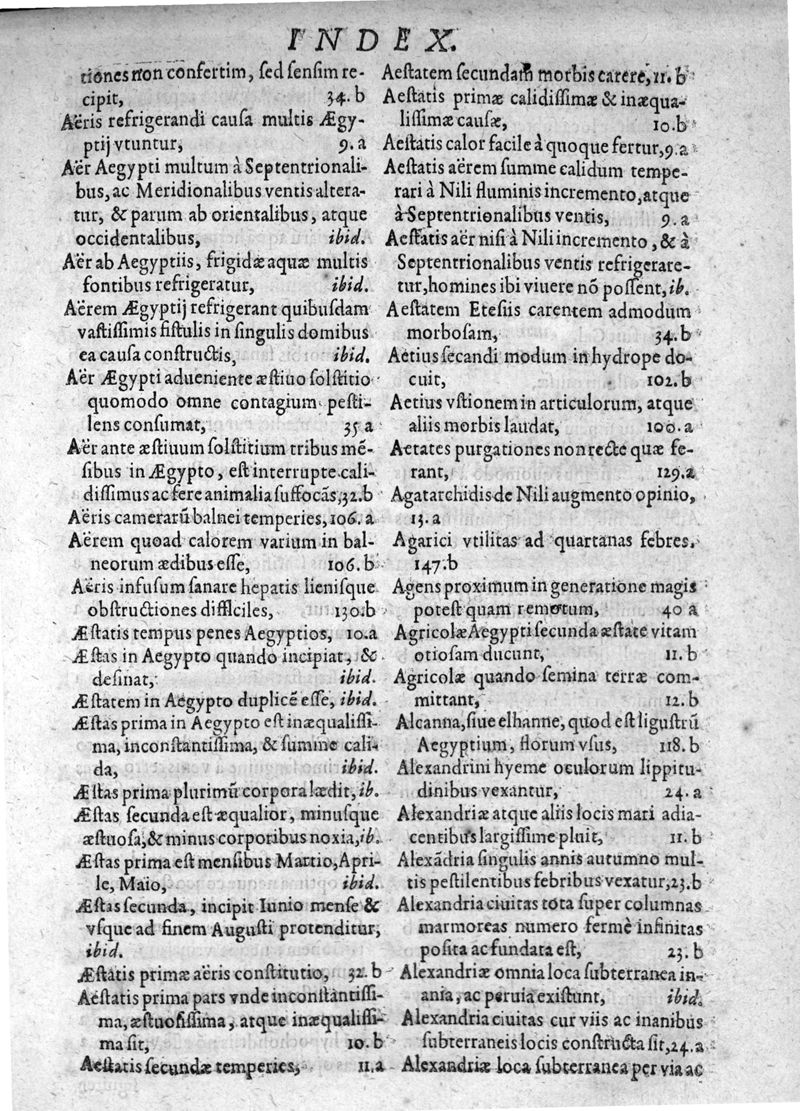 INDEX.
tiones non confertim, sed sensim re-
cipit, 34.b
Aëris refrigerandi causa multis Ægy-
ptij vtuntur, 9.a
Aër Aegypti multum à Septentrionali-
bus, ac Meridionalibus ventis altera-
tur, & parum ab orientalibus, atque
occidentalibus, ibid.
Aër ab Aegyptiis, frigidæ aquæ multis
fontibus refrigeratur, ibid.
Aërem Ægyptij refrigerant quibusdam
vastissimis fistulis in singulis domibus
ea causa constructis, ibid.
Aër Ægypti adueniente æstiuo solstitio
quomodo omne contagium pesti-
lens consumat, 35 a
Aër ante æstiuum solstitium tribus mē-
sibus in Ægypto, est interrupte cali-
dissimus ac fere animalia suffocãs, 32.b
Aëris camerarũ balnei temperies, 106.a
Aërem quoad calorem varium in bal-
neorum ædibus esse, 106.b
Aëris infusum sanare hepatis lienisque
obstructiones difficiles, 130.b
Æstatis tempus penes Aegyptios, 10.a
Æstas in Aegypto quando incipiat, &
desinat, ibid.
Æstatem in Aegypto duplicē esse, ibid.
Æstas prima in Aegypto est inæqualissi-
ma, inconstantissima, & summe cali-
da, ibid.
Æstas prima plurimũ corpora lædit, ib.
Æstas secunda est æqualior, minusque
æstuosa, & minus corporibus noxia, ib.
Æstas prima est mensibus Martio, Apri-
le, Maio, ibid.
Æstas secunda, incipit Iunio mense &
vsque ad finem Augusti protenditur,
ibid.
Æstatis primæ aëris constitutio, 32.b
Aestatis prima pars vnde inconstantissi-
ma, æstuosissima, atque inæqualissi-
ma sit, 10.b
Aestatis secundæ temperies, 11.a
Aestatem secundam morbis carere, 11.b
Aestatis primæ calidissimæ & inæqua-
lissimæ causæ, 10.b
Aestatis calor facile à quoque fertur, 9.a
Aestatis aërem summe calidum tempe-
rari à Nili fluminis incremento, atque
à Septentrionalibus ventis, 9.a
Aestatis aër nisi à Nili incremento, & à
Septentrionalibus ventis refrigerare-
tur, homines ibi viuere nõ possent, ib.
Aestatem Etesiis carentem admodum
morbosam, 34.b
Aetius secandi modum in hydrope do-
cuit, 102.b
Aetius vstionem in articulorum, atque
aliis morbis laudat, 100.a
Aetates purgationes non recte quæ fe-
rant, 129.a
Agatarchidis de Nili augmento opinio,
13.a
Agarici vtilitas ad quartanas febres.
147.b
Agens proximum in generatione magis
potest quam remotum, 40 a
Agricolæ Aegypti secunda æstate vitam
otiosam ducunt, 11.b
Agricolæ quando semina terræ com-
mittant, 12.b
Alcanna, siue elhanne, quod est ligustrũ
Aegyptium, florum vsus, 118.b
Alexandrini hyeme oculorum lippitu-
dinibus vexantur, 24.a
Alexandriæ atque aliis locis mari adia-
centibus largissime pluit, 11.b
Alexãdria singulis annis autumno mul-
tis pestilentibus febribus vexatur, 23.b
Alexandria ciuitas tota super columnas
marmoreas numero fermè infinitas
posita ac fundata est, 23.b
Alexandriæ omnia loca subterranea in-
ania, ac peruia existunt, ibid.
Alexandria ciuitas cur viis ac inanibus
subterraneis locis constructa sit, 24.a
Alexandriæ loca subterranea per via ac